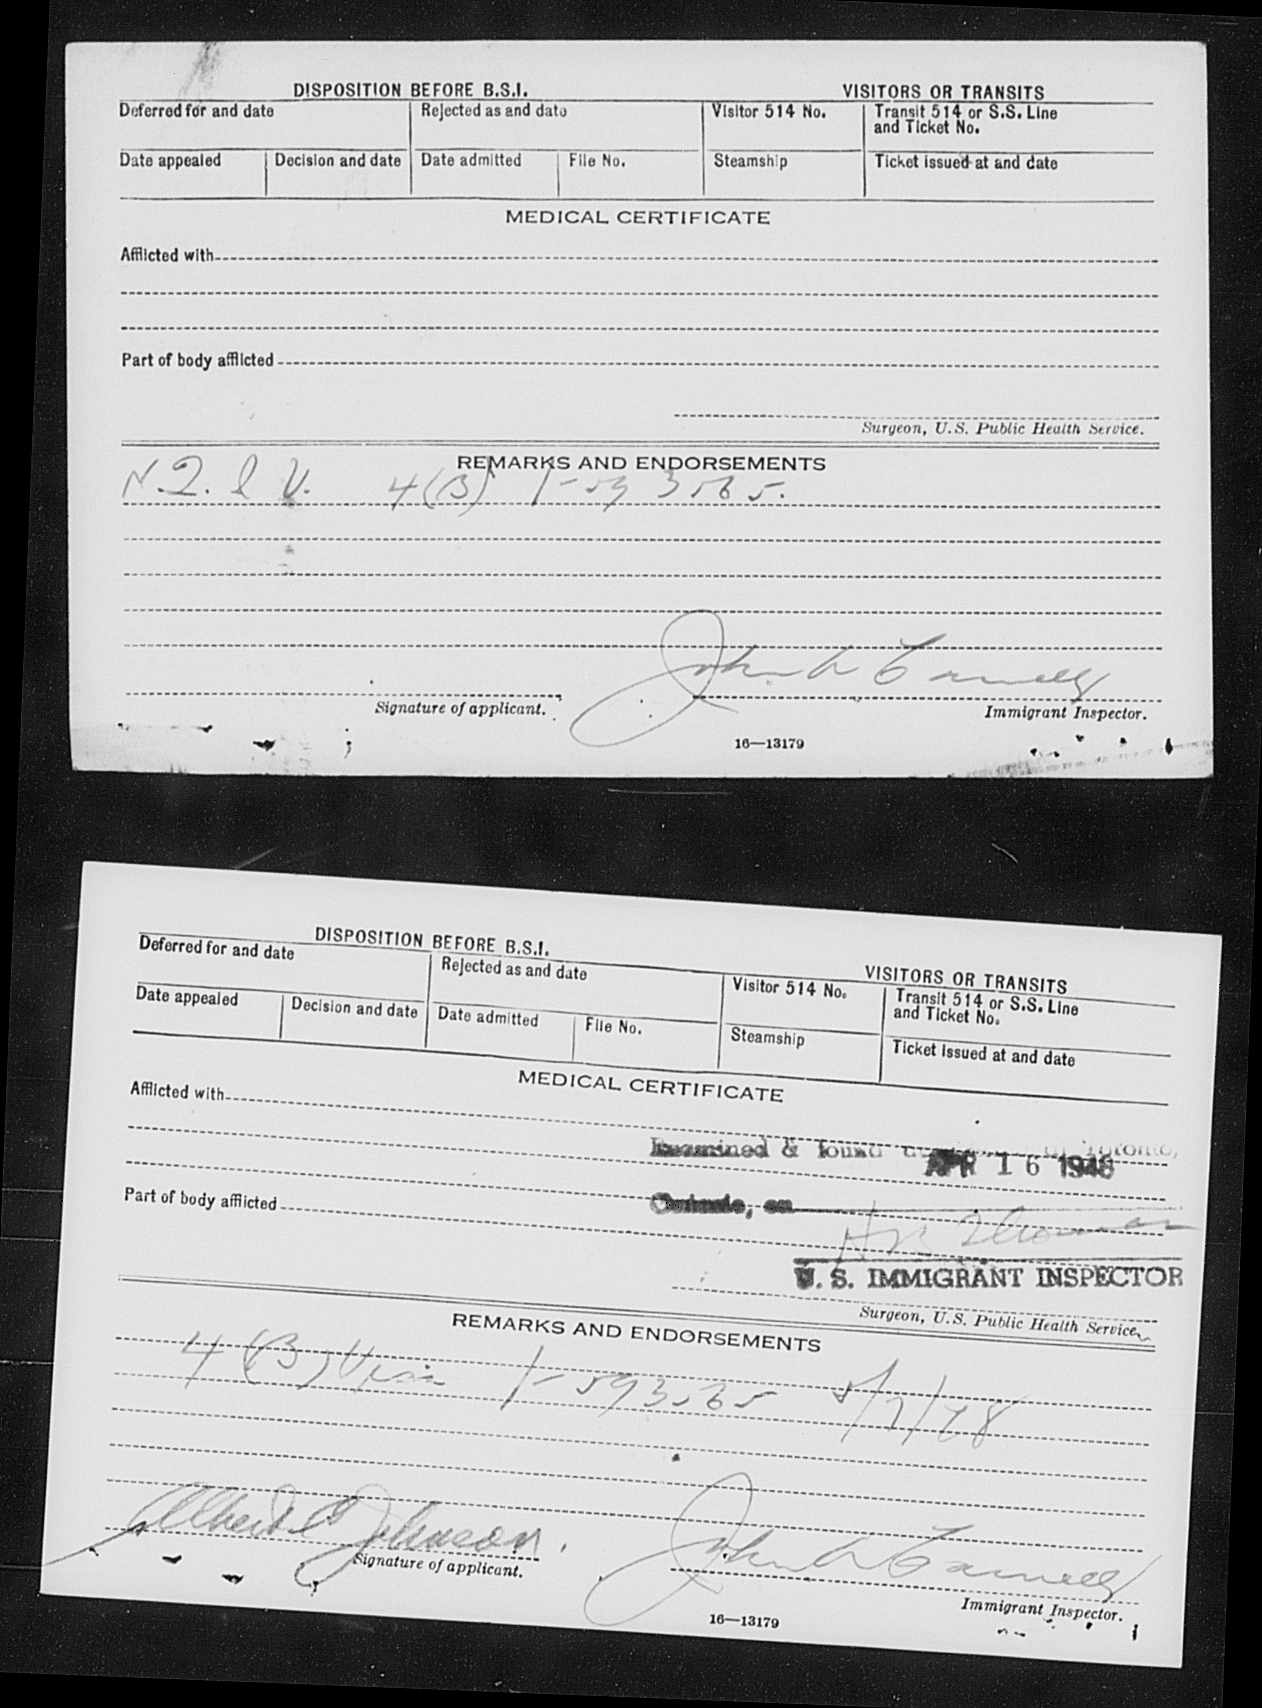 DISPOSITION BEFORE B.S.I. VISITORS OR TRANSITS
Deferred for and date Rejected as and date Visitor 514 No. Transit 514 or S.S. Line and Ticket No.
Date appealed Decision and date Date admitted File No. Steamship Ticket issued at and date
MEDICAL CERTIFICATE
Afflicted with
Part of body afflicted
Surgeon, U.S. Public Health Service.
REMARKS AND ENDORSEMENTS
N.Q.I V. 4(B) 1-593565.
John
Signature of applicant. Immigrant Inspector.
16—13179
DISPOSITION BEFORE B.S.I. VISITORS OR TRANSITS
Deferred for and date Rejected as and date Visitor 514 No. Transit 514 or S.S. Line and Ticket No.
Date appealed Decision and date Date admitted File No. Steamship Ticket issued at and date
MEDICAL CERTIFICATE
Afflicted with
Examined & found Toronto,
APR 16 1948
Part of body afflicted Ontario, on
U. S. IMMIGRANT INSPECTOR
Surgeon, U.S. Public Health Service.
REMARKS AND ENDORSEMENTS
4(B) Visa 1-593565
Albert C Johnson. John
Signature of applicant. Immigrant Inspector.
16—13179